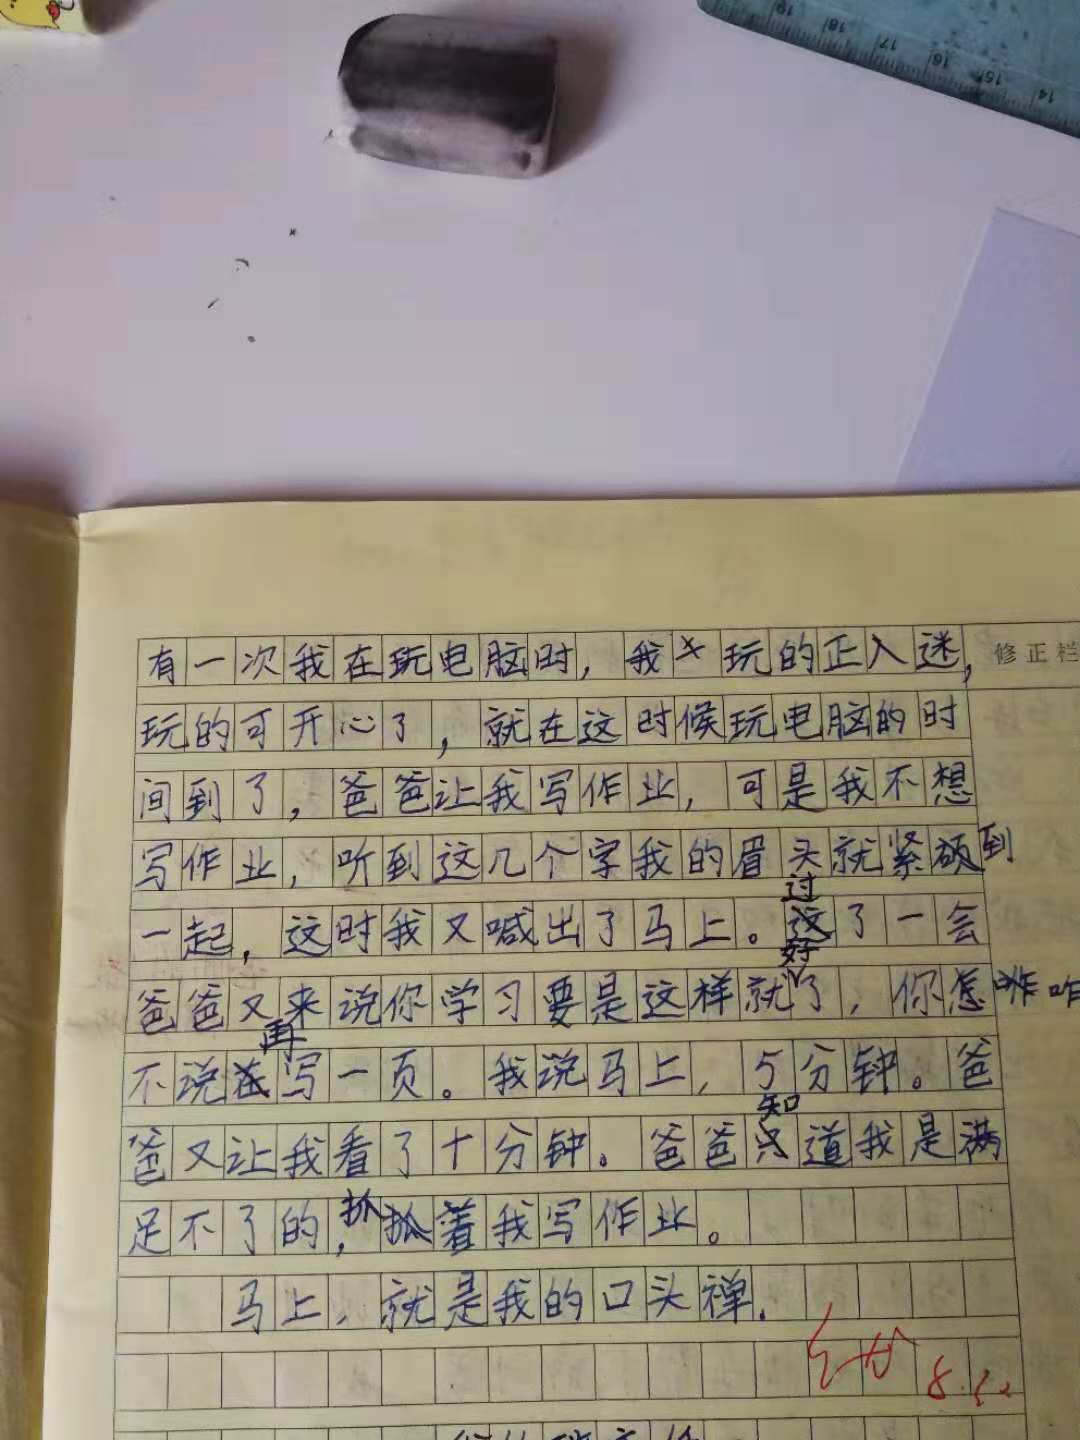 19 18 17 16 15 14
有一次我在玩电脑时，我玩的正入迷，
修正栏
玩的可开心了，就在这时候玩电脑的时
间到了，爸爸让我写作业，可是我不想
写作业，听到这几个字我的眉头就紧皱到
一起，这时我又喊出了马上。过了一会
爸爸又来说你学习要是这样就好了，你怎
不说再写一页。我说马上，5分钟。爸
爸又让我看了十分钟。爸爸知道我是满
足不了的，抓着我写作业。
马上，就是我的口头禅.
8.